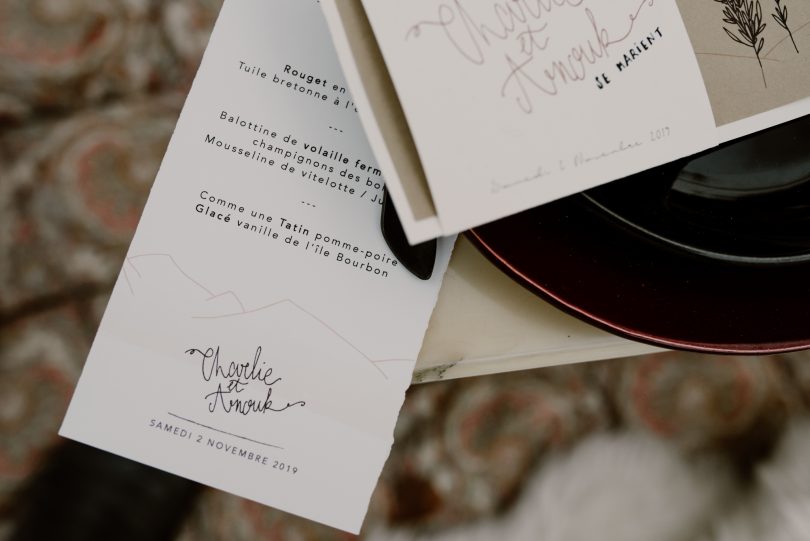 Rouget en
Tuile bretonne à l'
---
Ballottine de volaille ferm
champignons des bo
Mousseline de vitelotte / Ju
---
Comme une Tatin pomme-poire
Glacé vanille de l'île Bourbon
Charlie
et
Anouk
SAMEDI 2 NOVEMBRE 2019
Charlie
et
Anouk
SE MARIENT
Samedi 2 Novembre 2019